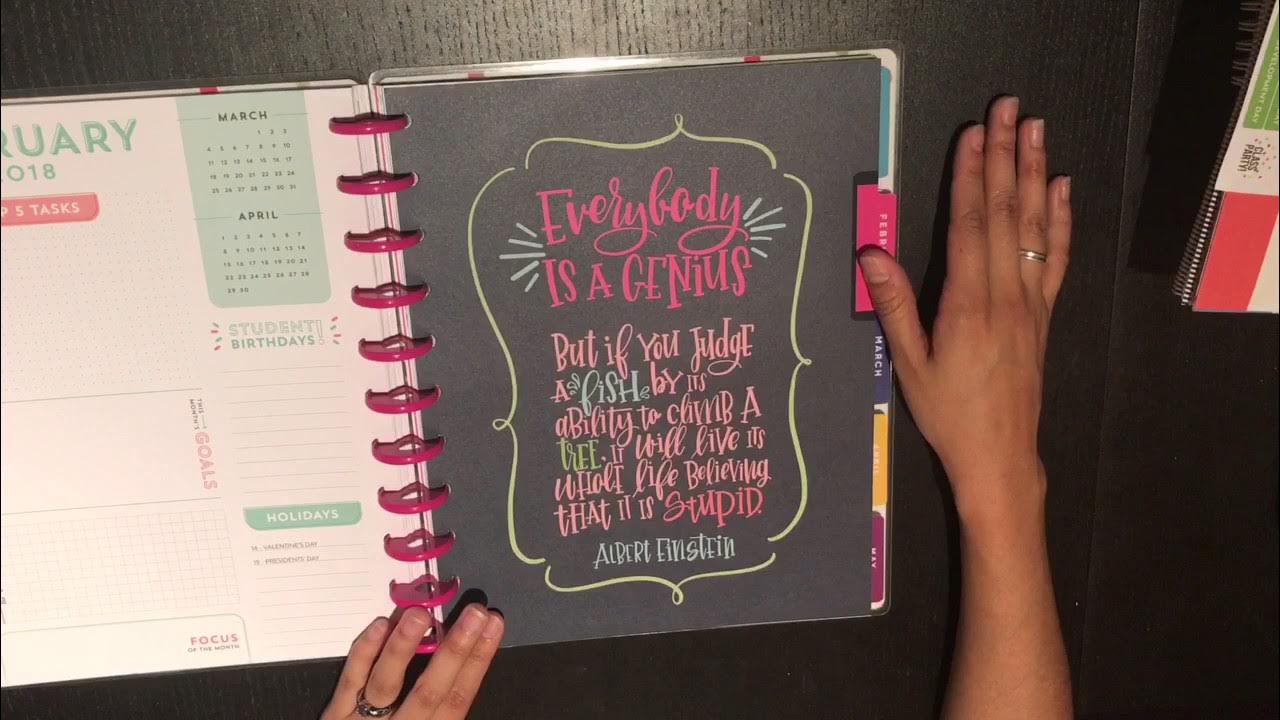 RUARY
2018
P 5 TASKS
THIS
MONTH'S
GOALS
MARCH
1 2 3
4 5 6 7 8 9 10
11 12 13 14 15 16 17
18 19 20 21 22 23 24
25 26 27 28 29 30 31
APRIL
1 2 3 4 5 6 7
8 9 10 11 12 13 14
15 16 17 18 19 20 21
22 23 24 25 26 27 28
29 30
STUDENT
BIRTHDAYS!
HOLIDAYS
14 VALENTINE'S DAY
19 PRESIDENTS' DAY
FOCUS
OF THE MONTH
EVERYBODY
IS A GENIUS
BUT IF YOU JUDGE
A FISH BY ITS
ABILITY TO CLIMB A
TREE, IT WILL LIVE ITS
WHOLE LIFE BELIEVING
THAT IT IS STUPID.
ALBERT EINSTEIN
FEBR
MARCH
APRIL
MAY
ELOPMENT DAY
CLASS
PARTY!